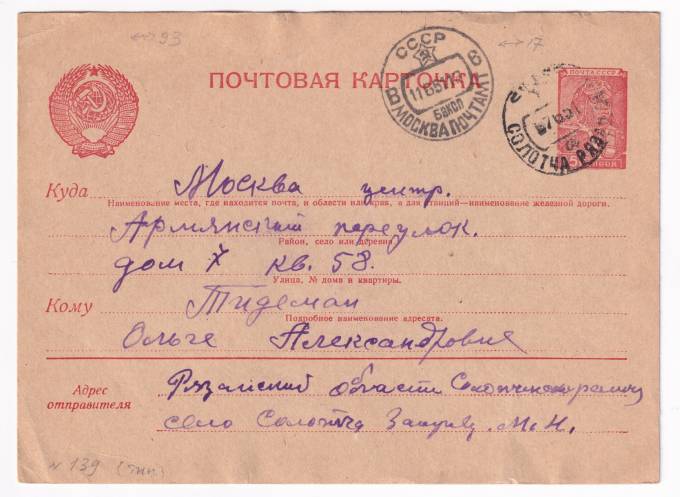 ↔93
↔17
СССР
ПОЧТОВАЯ КАРТОЧКА
МОСКВА ПОЧТАМТ 6
ПОЧТА СССР
СОЛОТЧА РЯЗ
Куда Москва центр.
Наименование места, где находится почта, и области или края, а для станций—наименование железной дороги.
Армянский переулок.
Район, село или деревня
дом 7 кв. 58.
Улица, № дома и квартиры.
Кому Тидеман
Подробное наименование адресата.
Ольге Александровне
Адрес отправителя Рязанский области
село Солотча М.Н.
N 139